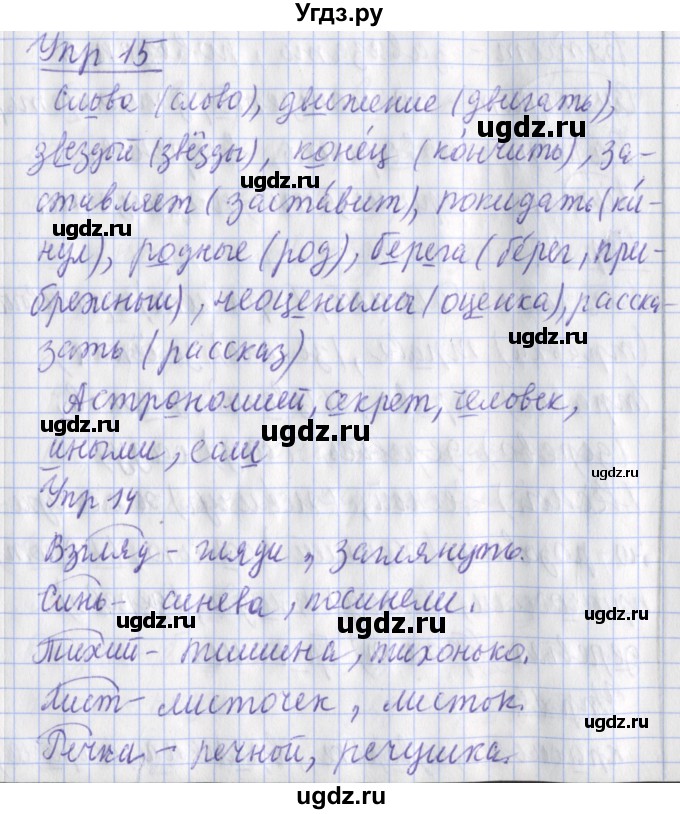 Угдз.ру
Упр 15
Слова (слово), движение (двигать),
звезды (звёзды), коне́ц (ко́нчить), за-
ставляет (заста́вит), покидать (ки́-
нул), родные (род), берега (бе́рег, при-
брежный), неоценима (оценка), расска-
зать (рассказ)
Астрономией, секрет, человек,
иными, сам
Упр 14
Взгляд - гляди, заглянуть.
Синь - синева, посинели.
Тихий - тишина, тихонько.
Лист - листочек, листок.
Речка - речной, речушка.
ugdz.ru
ugdz.ru
ugdz.ru
ugdz.ru
ugdz.ru
ugdz.ru
ugdz.ru
ugdz.ru
ugdz.ru
ugdz.ru
ugdz.ru
ugdz.ru